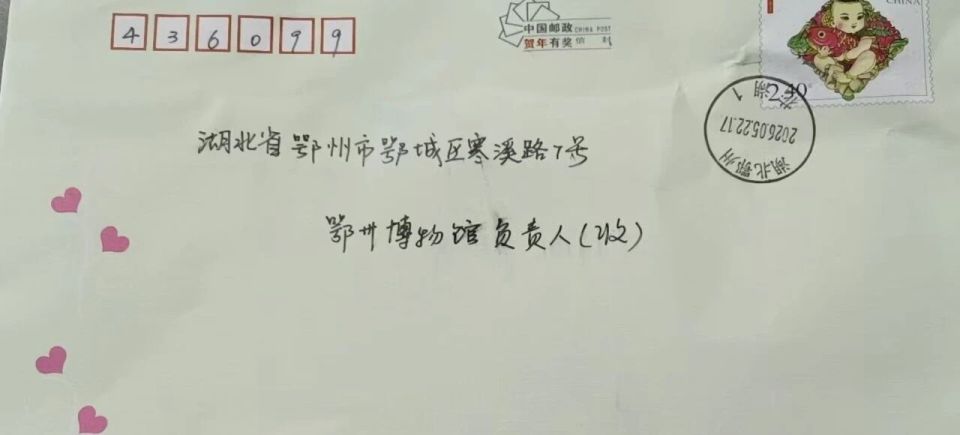 436099
中国邮政 CHINA POST
贺年有奖信封
CHINA
2.40
湖北省鄂州市鄂城区寒溪路7号
鄂州博物馆负责人(收)
2026.05.22.17
湖北鄂州
1